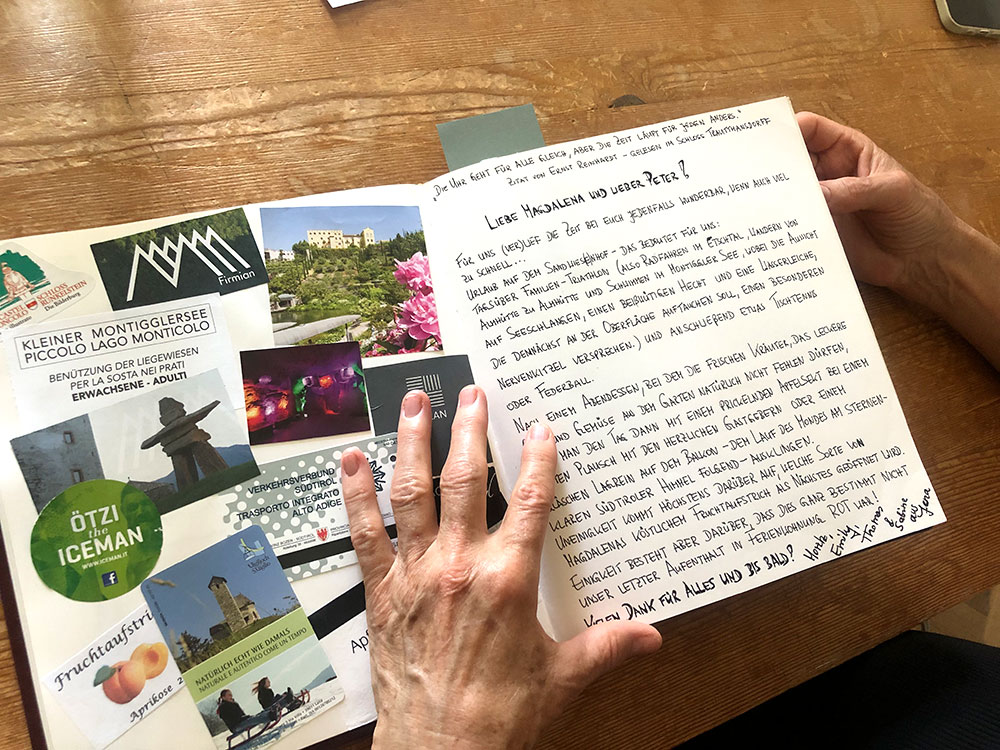 CASTEL
RONCOLO
SCHLOSS
RUNKELSTEIN
Die Bilderburg
Firmian
KLEINER MONTIGGLERSEE
PICCOLO LAGO MONTICOLO
BENÜTZUNG DER LIEGEWIESEN
PER LA SOSTA NEI PRATI
ERWACHSENE - ADULTI
VERKEHRSVERBUND
SÜDTIROL
TRASPORTO INTEGRATO
ALTO ADIGE
ÖTZI
the
ICEMAN
WWW.ICEMAN.IT
f
NATÜRLICH ECHT WIE DAMALS
NATURALE E AUTENTICO COME UN TEMPO
Fruchtaufstri
Aprikose 2
Ap
"DIE UHR GEHT FÜR ALLE GLEICH, ABER DIE ZEIT LÄUFT FÜR JEDEN ANDERS."
ZITAT VON ERNST REINHARDT - GELESEN IN SCHLOSS TRAUTTMANSDORFF
LIEBE MAGDALENA UND LIEBER PETER!
FÜR UNS (VER)LIEF DIE ZEIT BEI EUCH JEDENFALLS WUNDERBAR, WENN AUCH VIEL
ZU SCHNELL...
URLAUB AUF DEM SANDWIESENHOF - DAS BEDEUTET FÜR UNS:
TAGSÜBER FAMILIEN-TRIATHLON (ALSO RADFAHREN IM ETSCHTAL, WANDERN VON
ALMHÜTTE ZU ALMHÜTTE UND SCHWIMMEN IM MONTIGGLER SEE, WOBEI DIE AUSSICHT
AUF SEESCHLANGEN, EINEN BEIßWÜTIGEN HECHT UND EINE WASSERLEICHE,
DIE DEMNÄCHST AN DER OBERFLÄCHE AUFTAUCHEN SOLL, EINEN BESONDEREN
NERVENKITZEL VERSPRECHEN.) UND ANSCHLIEßEND ETWAS TISCHTENNIS
ODER FEDERBALL.
NACH EINEM ABENDESSEN, BEI DEM DIE FRISCHEN KRÄUTER, DAS LECKERE
UND GEMÜSE AUS DEM GARTEN NATÜRLICH NICHT FEHLEN DÜRFEN,
MAN DEN TAG DANN MIT EINEM PRICKELNDEN APFELSEKT BEI EINEM
TEN PLAUSCH MIT DEN HERZLICHEN GASTGEBERN ODER EINEM
LÄSCHEN LAGREIN AUF DEM BALKON - DEM LAUF DES MONDES AM STERNEN-
KLAREN SÜDTIROLER HIMMEL FOLGEND - AUSKLINGEN.
UNEINIGKEIT KOMMT HÖCHSTENS DARÜBER AUF, WELCHE SORTE VON
MAGDALENAS KÖSTLICHEM FRUCHTAUFSTRICH ALS NÄCHSTES GEÖFFNET WIRD.
EINIGKEIT BESTEHT ABER DARÜBER, DASS DIES GANZ BESTIMMT NICHT
UNSER LETZTER AUFENTHALT IN FERIENWOHNUNG ROT WAR!
VIELEN DANK FÜR ALLES UND BIS BALD!
Emily
Thomas
&
Sabine